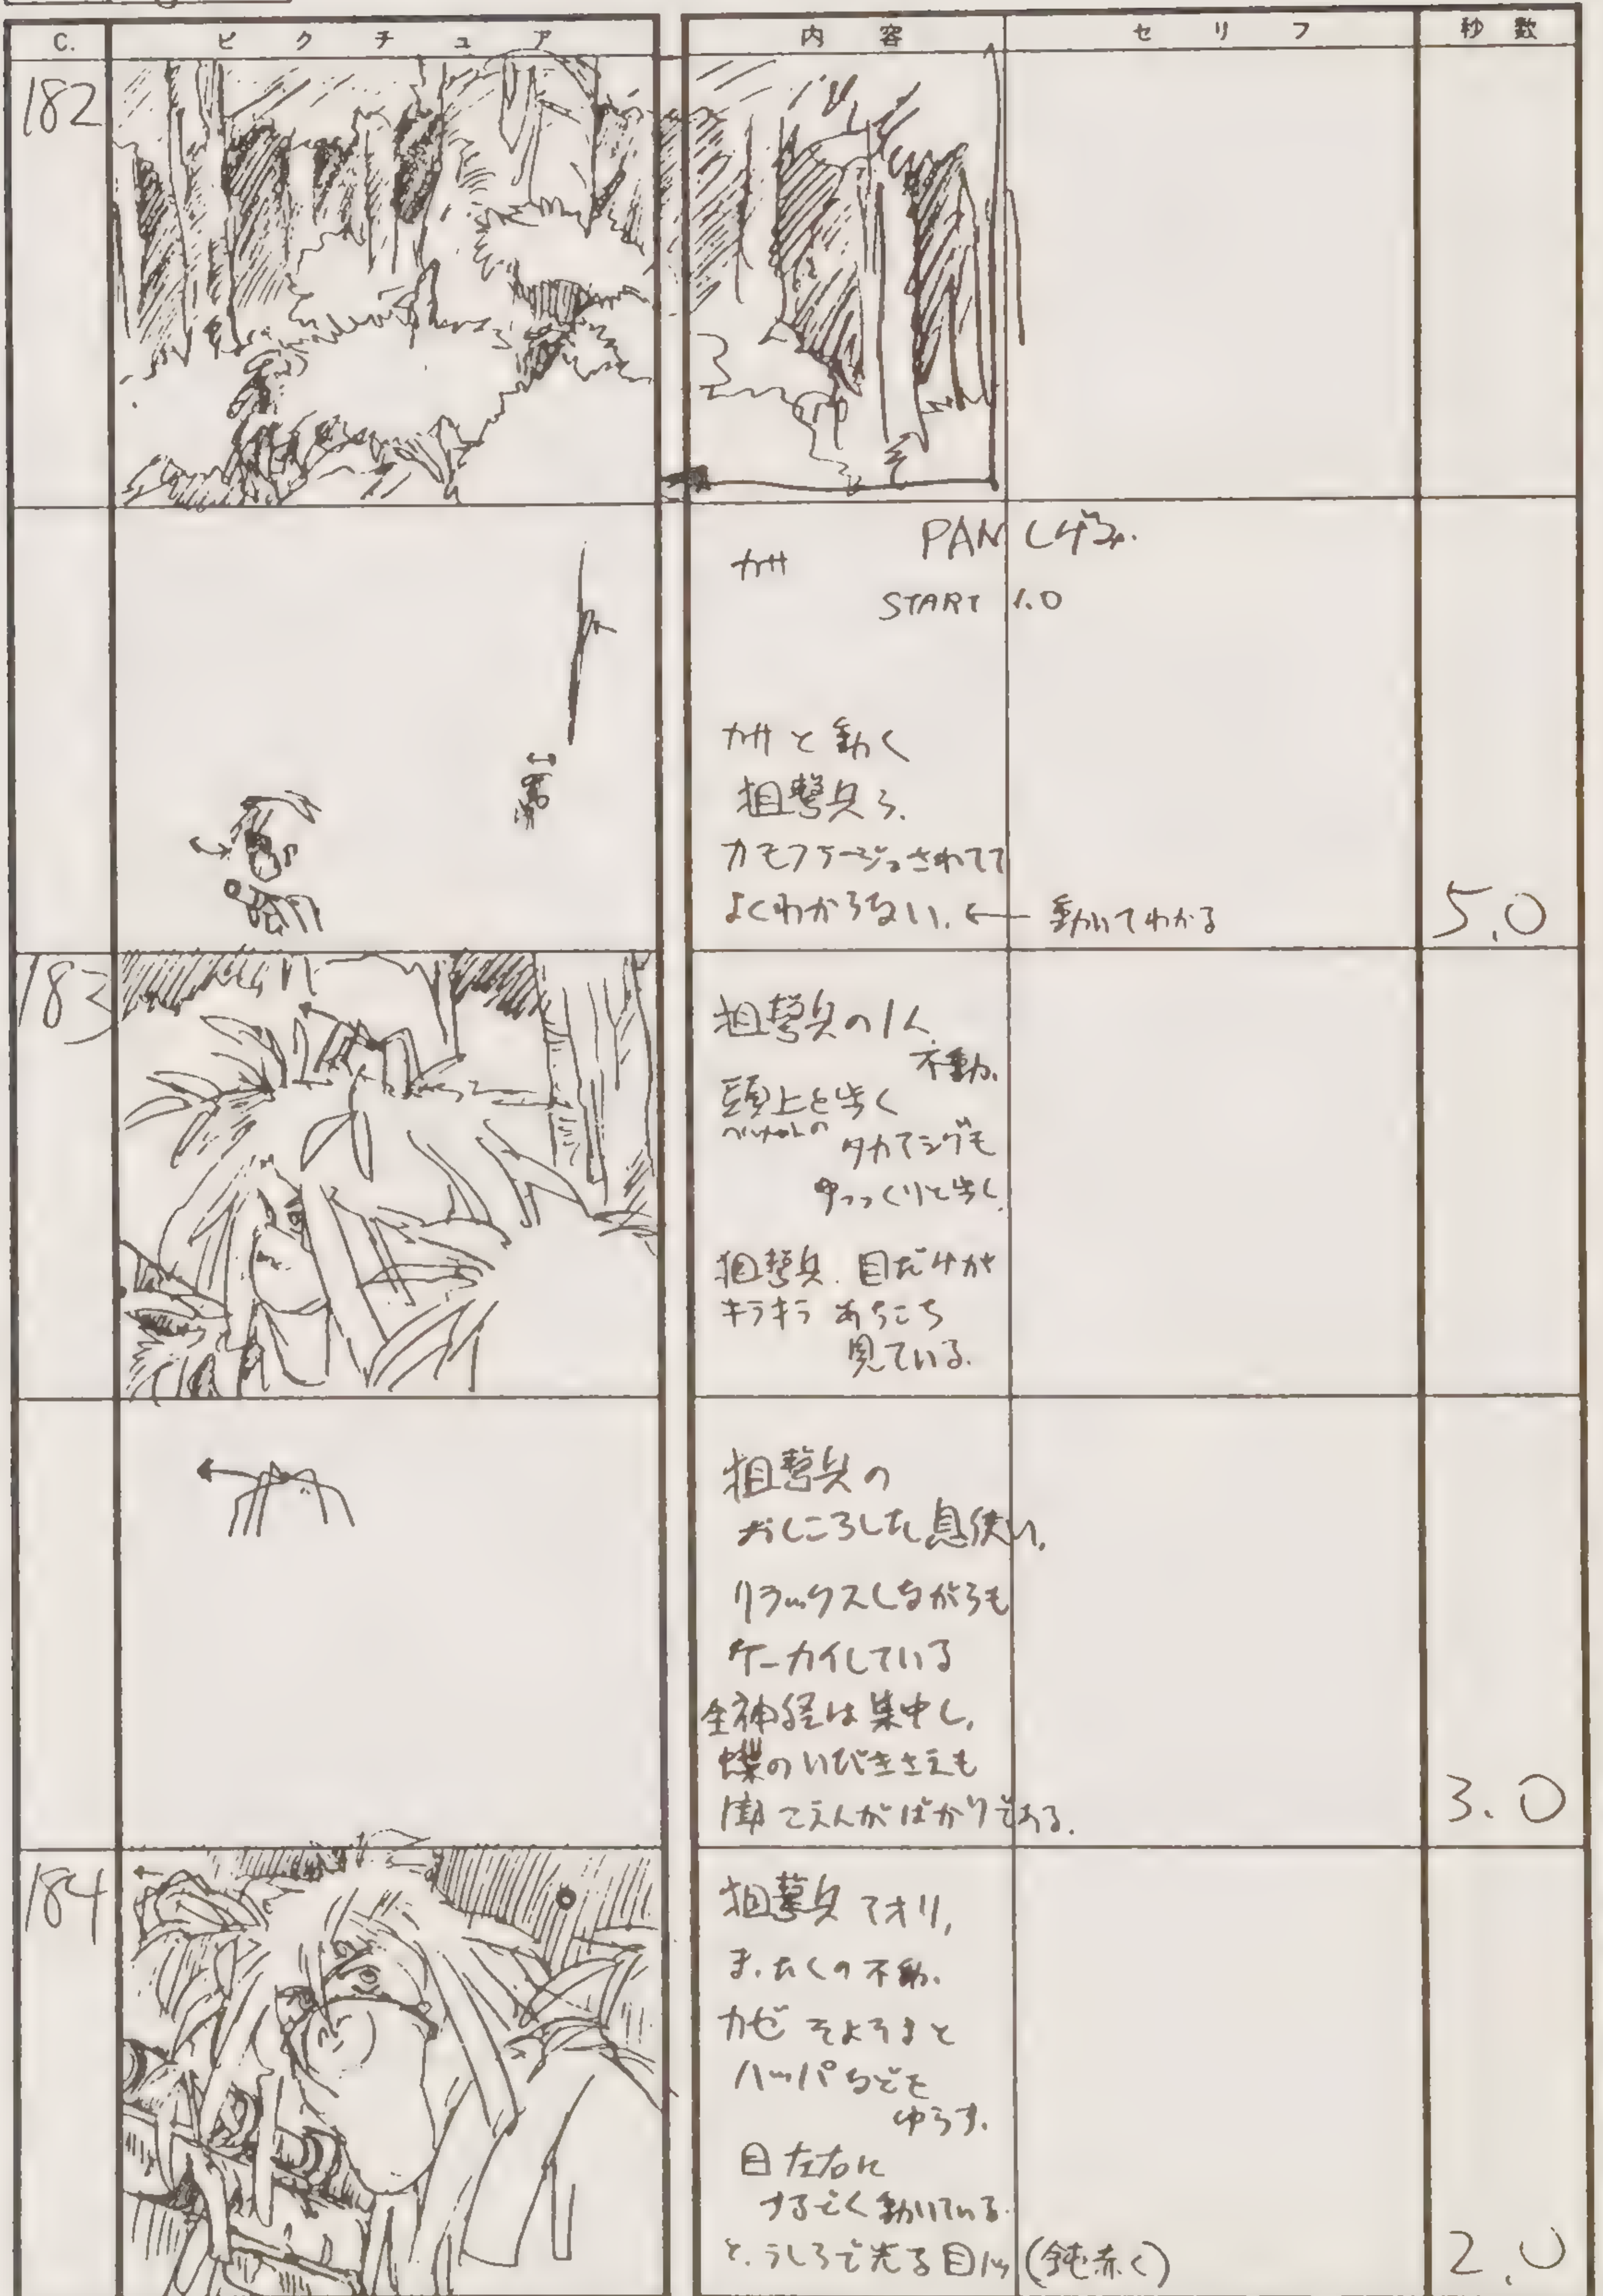 C.
ピクチュア
内容
セリフ
秒数
182
PAN しげみ.
カサ
START 1.0
カサと動く
狙撃兵ら.
カモフラージュされてて
よくわからない. ← 動いてわかる
5.0
183
狙撃兵の1人
不動.
頭上を歩く
ヘルメットの
タカアシグモ
ゆっくりと歩く.
狙撃兵. 目だけが
キラキラ あちこち
見ている.
狙撃兵の
おしころした息使い.
リラックスしながらも
ケーカイしている
全神経は集中し,
蝶のいびきさえも
聞こえんがばかりである.
3.0
184
狙撃兵 アオリ,
まったくの不動.
カゼ そよそよと
ハッパなどを
ゆらす.
目 左右に
するどく動いている.
と、うしろで光る目ハッ (鈍赤く)
2.0